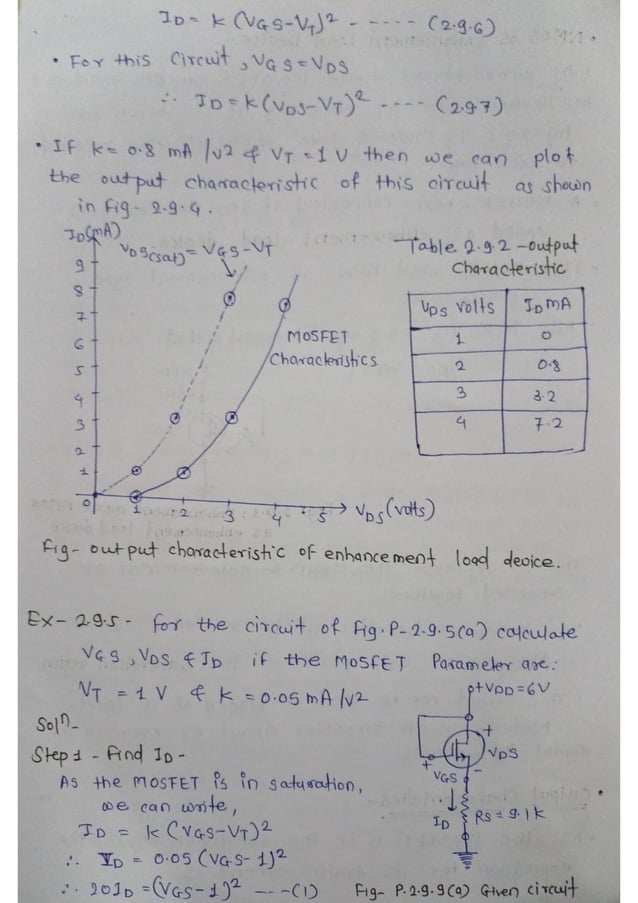 ID = k (VGS-VT)2 - ---- (2.9.6)
• For this Circuit, VGS = VDS
∴ ID = k (VDS-VT)2 ---- (2.9.7)
• If k = 0.8 mA /v2 & VT = 1 V then we can plot
the output characteristic of this circuit as shown
in fig - 2.9.4.
ID(mA)
VDS(sat) = VGS-VT
9
8
7
6
5
4
3
2
1
0
1
2
3
4
5
VDS (volts)
MOSFET
Characteristics
Table 2.9.2 - output
Characteristic
VDS volts ID mA
1 0
2 0.8
3 3.2
4 7.2
fig - output characteristic of enhancement load device.
Ex - 2.9.5 - for the circuit of fig. P-2.9.5(a) calculate
VGS, VDS & ID if the MOSFET Parameter are:
VT = 1 V & k = 0.05 mA /V2
Soln -
Step 1 - find ID -
As the MOSFET is in saturation,
we can write,
ID = k (VGS-VT)2
∴ ID = 0.05 (VGS-1)2
∴ 20ID = (VGS-1)2 ---(1)
+VDD = 6V
+
VDS
-
+
VGS
ID
RS = 9.1k
Fig - P.2.9.9(a) Given circuit